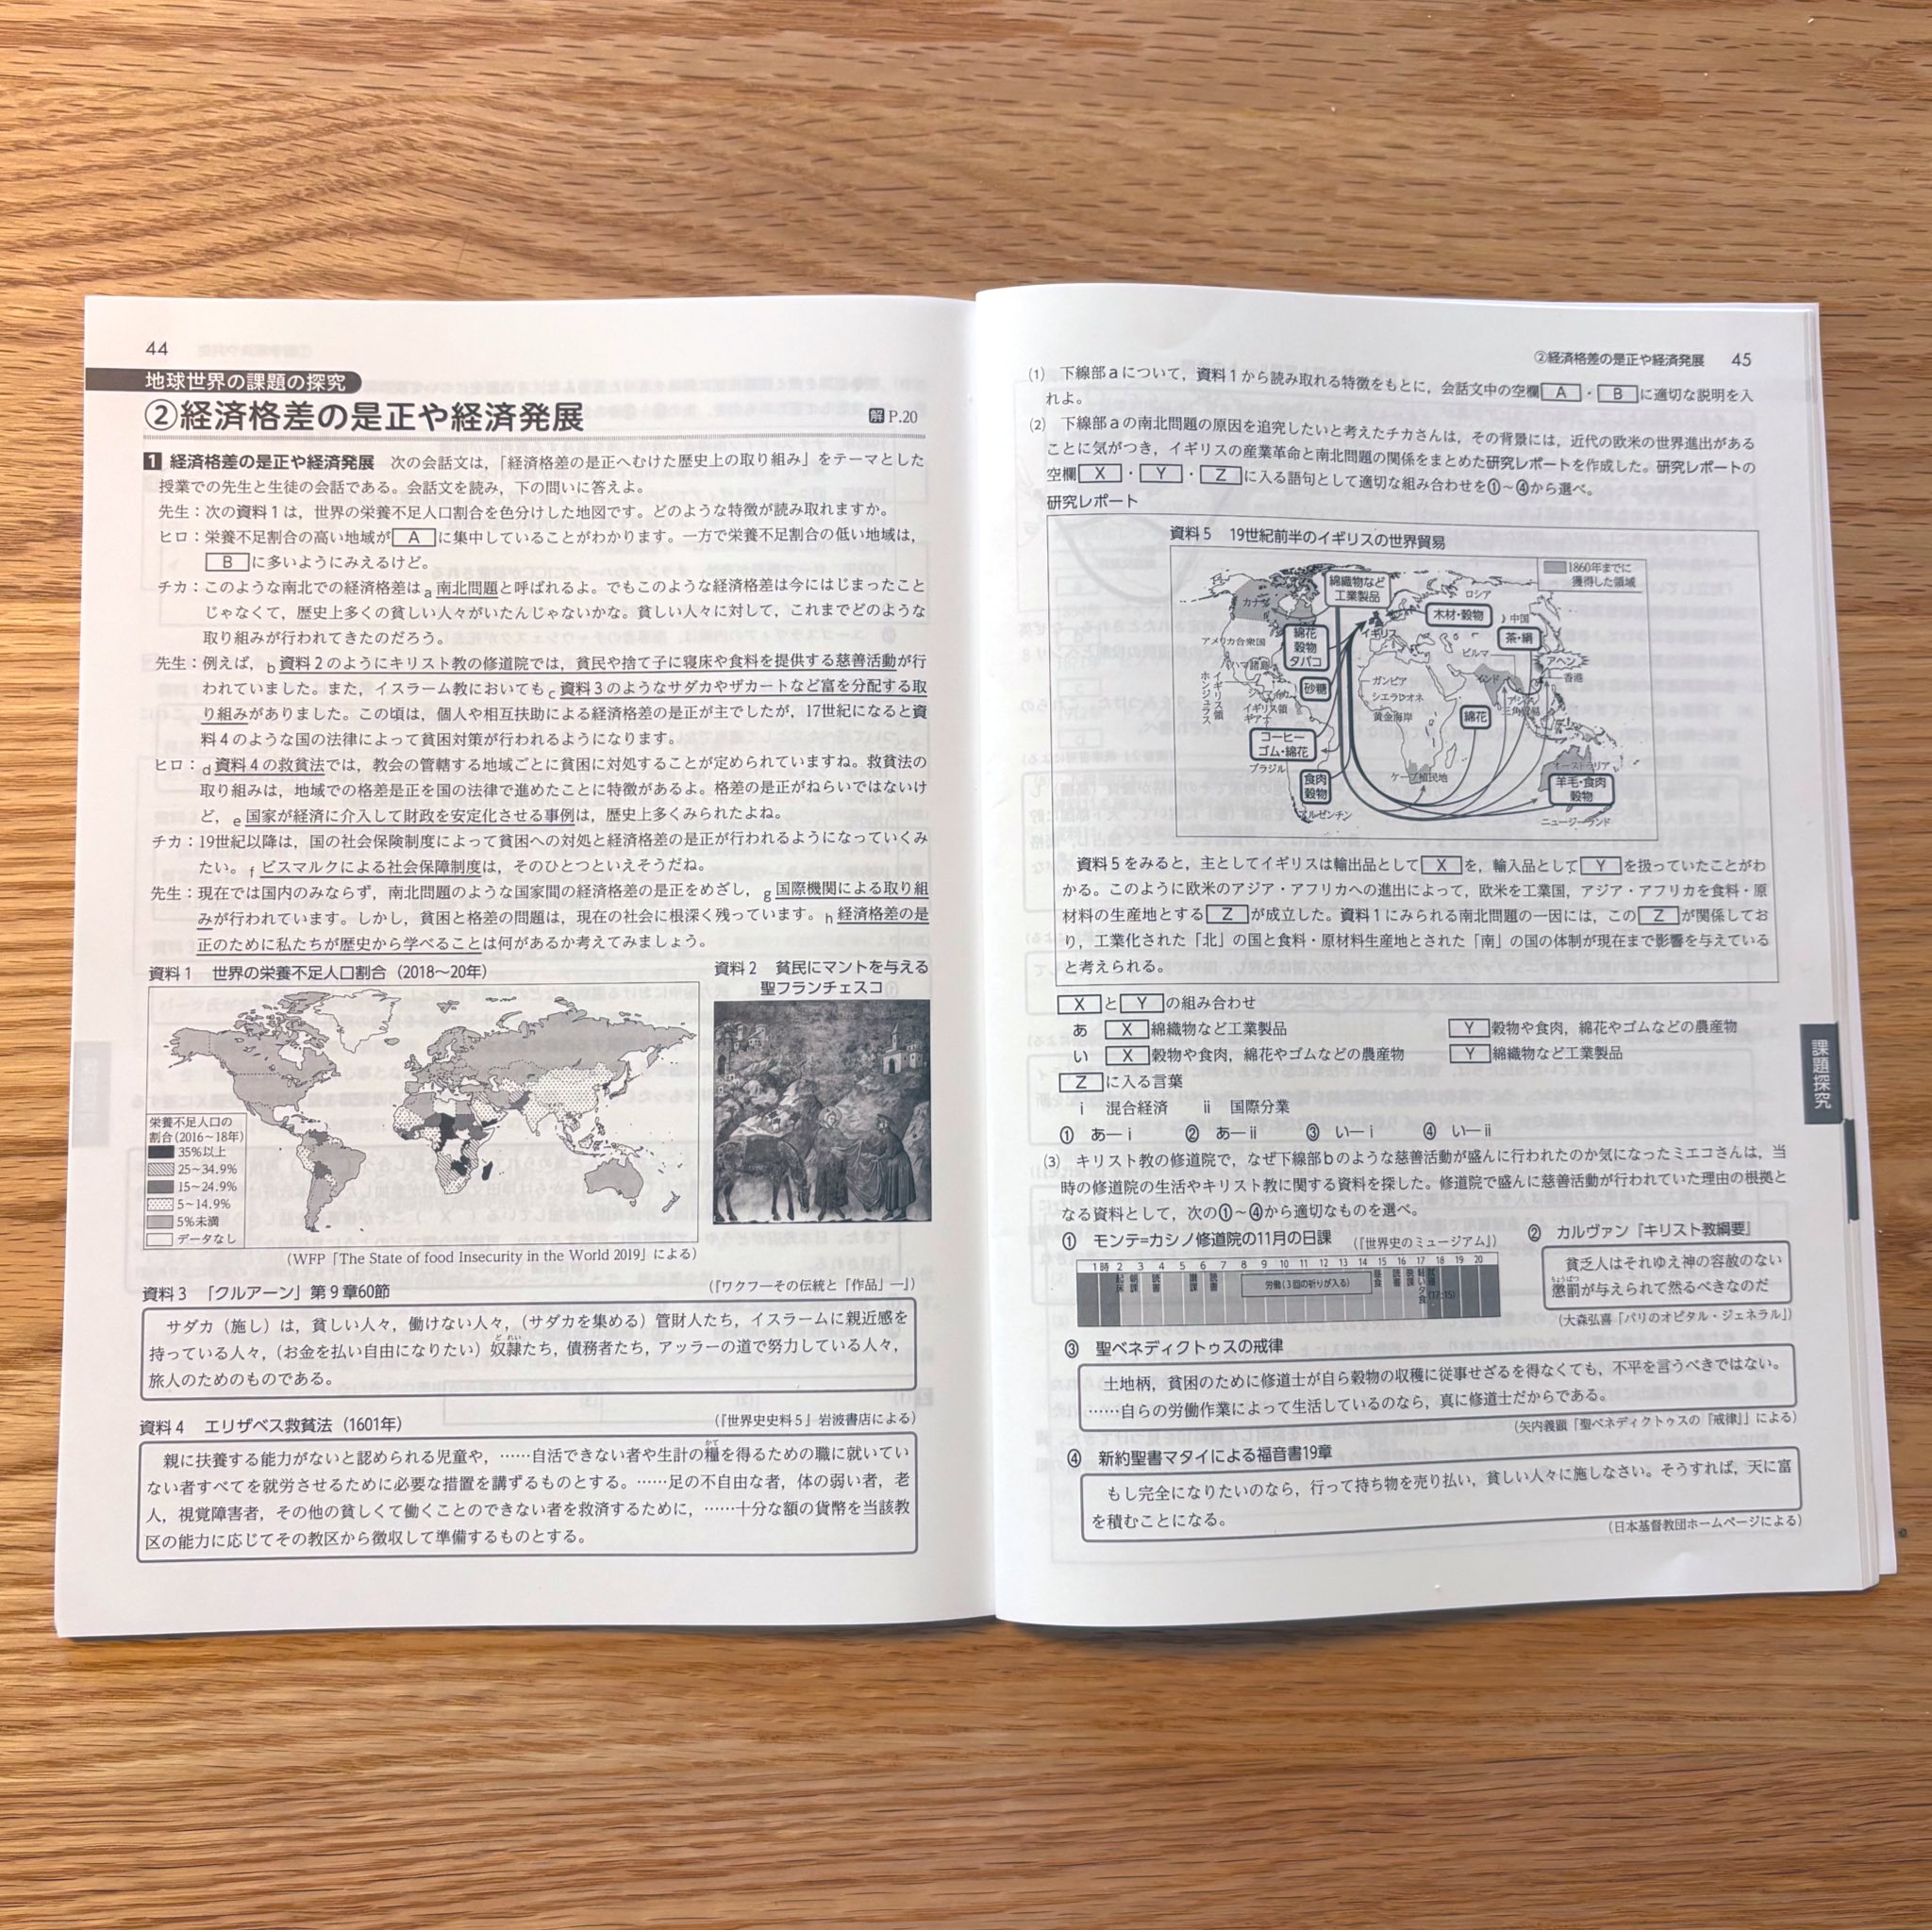 44
地球世界の課題の探究
②経済格差の是正や経済発展
解 P.20
1 経済格差の是正や経済発展 次の会話文は，「経済格差の是正へむけた歴史上の取り組み」をテーマとした
授業での先生と生徒の会話である。会話文を読み，下の問いに答えよ。
先生：次の資料1は，世界の栄養不足人口割合を色分けした地図です。どのような特徴が読み取れますか。
ヒロ：栄養不足割合の高い地域が A に集中していることがわかります。一方で栄養不足割合の低い地域は，
B に多いようにみえるけど。
チカ：このような南北での経済格差はa南北問題と呼ばれるよ。でもこのような経済格差は今にはじまったこと
じゃなくて，歴史上多くの貧しい人々がいたんじゃないかな。貧しい人々に対して，これまでどのような
取り組みが行われてきたのだろう。
先生：例えば，b資料2のようにキリスト教の修道院では，貧民や捨て子に寝床や食料を提供する慈善活動が行
われていました。また，イスラーム教においてもc資料3のようなサダカやザカートなど富を分配する取
り組みがありました。この頃は，個人や相互扶助による経済格差の是正が主でしたが，17世紀になると資
料4のような国の法律によって貧困対策が行われるようになります。
ヒロ：d資料4の救貧法では，教会の管轄する地域ごとに貧困に対処することが定められていますね。救貧法の
取り組みは，地域での格差是正を国の法律で進めたことに特徴があるよ。格差の是正がねらいではないけ
ど，e国家が経済に介入して財政を安定化させる事例は，歴史上多くみられたよね。
チカ：19世紀以降は，国の社会保険制度によって貧困への対処と経済格差の是正が行われるようになっていくみ
たい。fビスマルクによる社会保障制度は，そのひとつといえそうだね。
先生：現在では国内のみならず，南北問題のような国家間の経済格差の是正をめざし，g国際機関による取り組
みが行われています。しかし，貧困と格差の問題は，現在の社会に根深く残っています。h経済格差の是
正のために私たちが歴史から学べることは何があるか考えてみましょう。
資料1 世界の栄養不足人口割合（2018～20年）
栄養不足人口の
割合(2016～18年)
35%以上
25～34.9%
15～24.9%
5～14.9%
5%未満
データなし
（WFP「The State of food Insecurity in the World 2019」による）
資料2 貧民にマントを与える
聖フランチェスコ
資料3 「クルアーン」第9章60節
（『ワクフーその伝統と「作品」―』）
サダカ（施し）は，貧しい人々，働けない人々，（サダカを集める）管財人たち，イスラームに親近感を
持っている人々，（お金を払い自由になりたい）奴隷たち，債務者たち，アッラーの道で努力している人々，
旅人のためのものである。
資料4 エリザベス救貧法（1601年）
（『世界史史料5』岩波書店による）
親に扶養する能力がないと認められる児童や，……自活できない者や生計の糧を得るための職に就いてい
ない者すべてを就労させるために必要な措置を講ずるものとする。……足の不自由な者，体の弱い者，老
人，視覚障害者，その他の貧しくて働くことのできない者を救済するために，……十分な額の貨幣を当該教
区の能力に応じてその教区から徴収して準備するものとする。
②経済格差の是正や経済発展 45
(1) 下線部aについて，資料1から読み取れる特徴をもとに，会話文中の空欄 A ・ B に適切な説明を入
れよ。
(2) 下線部aの南北問題の原因を追究したいと考えたチカさんは，その背景には，近代の欧米の世界進出がある
ことに気がつき，イギリスの産業革命と南北問題の関係をまとめた研究レポートを作成した。研究レポートの
空欄 X ・ Y ・ Z に入る語句として適切な組み合わせを①～④から選べ。
研究レポート
資料5 19世紀前半のイギリスの世界貿易
1860年までに
獲得した領域
綿織物など
工業製品
ロシア
カナダ
木材・穀物
中国
アメリカ合衆国
綿花
穀物
タバコ
イギリス
茶・絹
ビルマ
アヘン
香港
バハマ諸島
イギリス領
ホンジュラス
砂糖
ガンビア
シエラレオネ
黄金海岸
インド
アジア
三角貿易
イギリス領
ギアナ
綿花
コーヒー
ゴム・綿花
ブラジル
ケープ植民地
オーストラリア
食肉
穀物
羊毛・食肉
穀物
アルゼンチン
ニュージーランド
資料5をみると，主としてイギリスは輸出品として X を，輸入品として Y を扱っていたことがわ
かる。このように欧米のアジア・アフリカへの進出によって，欧米を工業国，アジア・アフリカを食料・原
材料の生産地とする Z が成立した。資料1にみられる南北問題の一因には，この Z が関係してお
り，工業化された「北」の国と食料・原材料生産地とされた「南」の国の体制が現在まで影響を与えている
と考えられる。
X と Y の組み合わせ
あ X 綿織物など工業製品 Y 穀物や食肉，綿花やゴムなどの農産物
い X 穀物や食肉，綿花やゴムなどの農産物 Y 綿織物など工業製品
Z に入る言葉
i 混合経済 ii 国際分業
① あ―i ② あ―ii ③ い―i ④ い―ii
(3) キリスト教の修道院で，なぜ下線部bのような慈善活動が盛んに行われたのか気になったミエコさんは，当
時の修道院の生活やキリスト教に関する資料を探した。修道院で盛んに慈善活動が行われていた理由の根拠と
なる資料として，次の①～④から適切なものを選べ。
① モンテ=カシノ修道院の11月の日課 （『世界史のミュージアム』）
1時 2 3 4 5 6 7 8 9 10 11 12 13 14 15 16 17 18 19 20
起床 朝課 読書 讃課 読書 労働（3回の祈りが入る） 昼食 読書 晩課 軽い夕食 (17:15)
② カルヴァン『キリスト教綱要』
貧乏人はそれゆえ神の容赦のない
懲罰が与えられて然るべきなのだ
（大森弘喜「パリのオピタル・ジェネラル」）
③ 聖ベネディクトゥスの戒律
土地柄，貧困のために修道士が自ら穀物の収穫に従事せざるを得なくても，不平を言うべきではない。
……自らの労働作業によって生活しているのなら，真に修道士だからである。
（矢内義顕「聖ベネディクトゥスの『戒律』」による）
④ 新約聖書マタイによる福音書19章
もし完全になりたいのなら，行って持ち物を売り払い，貧しい人々に施しなさい。そうすれば，天に富
を積むことになる。
（日本基督教団ホームページによる）
課題探究